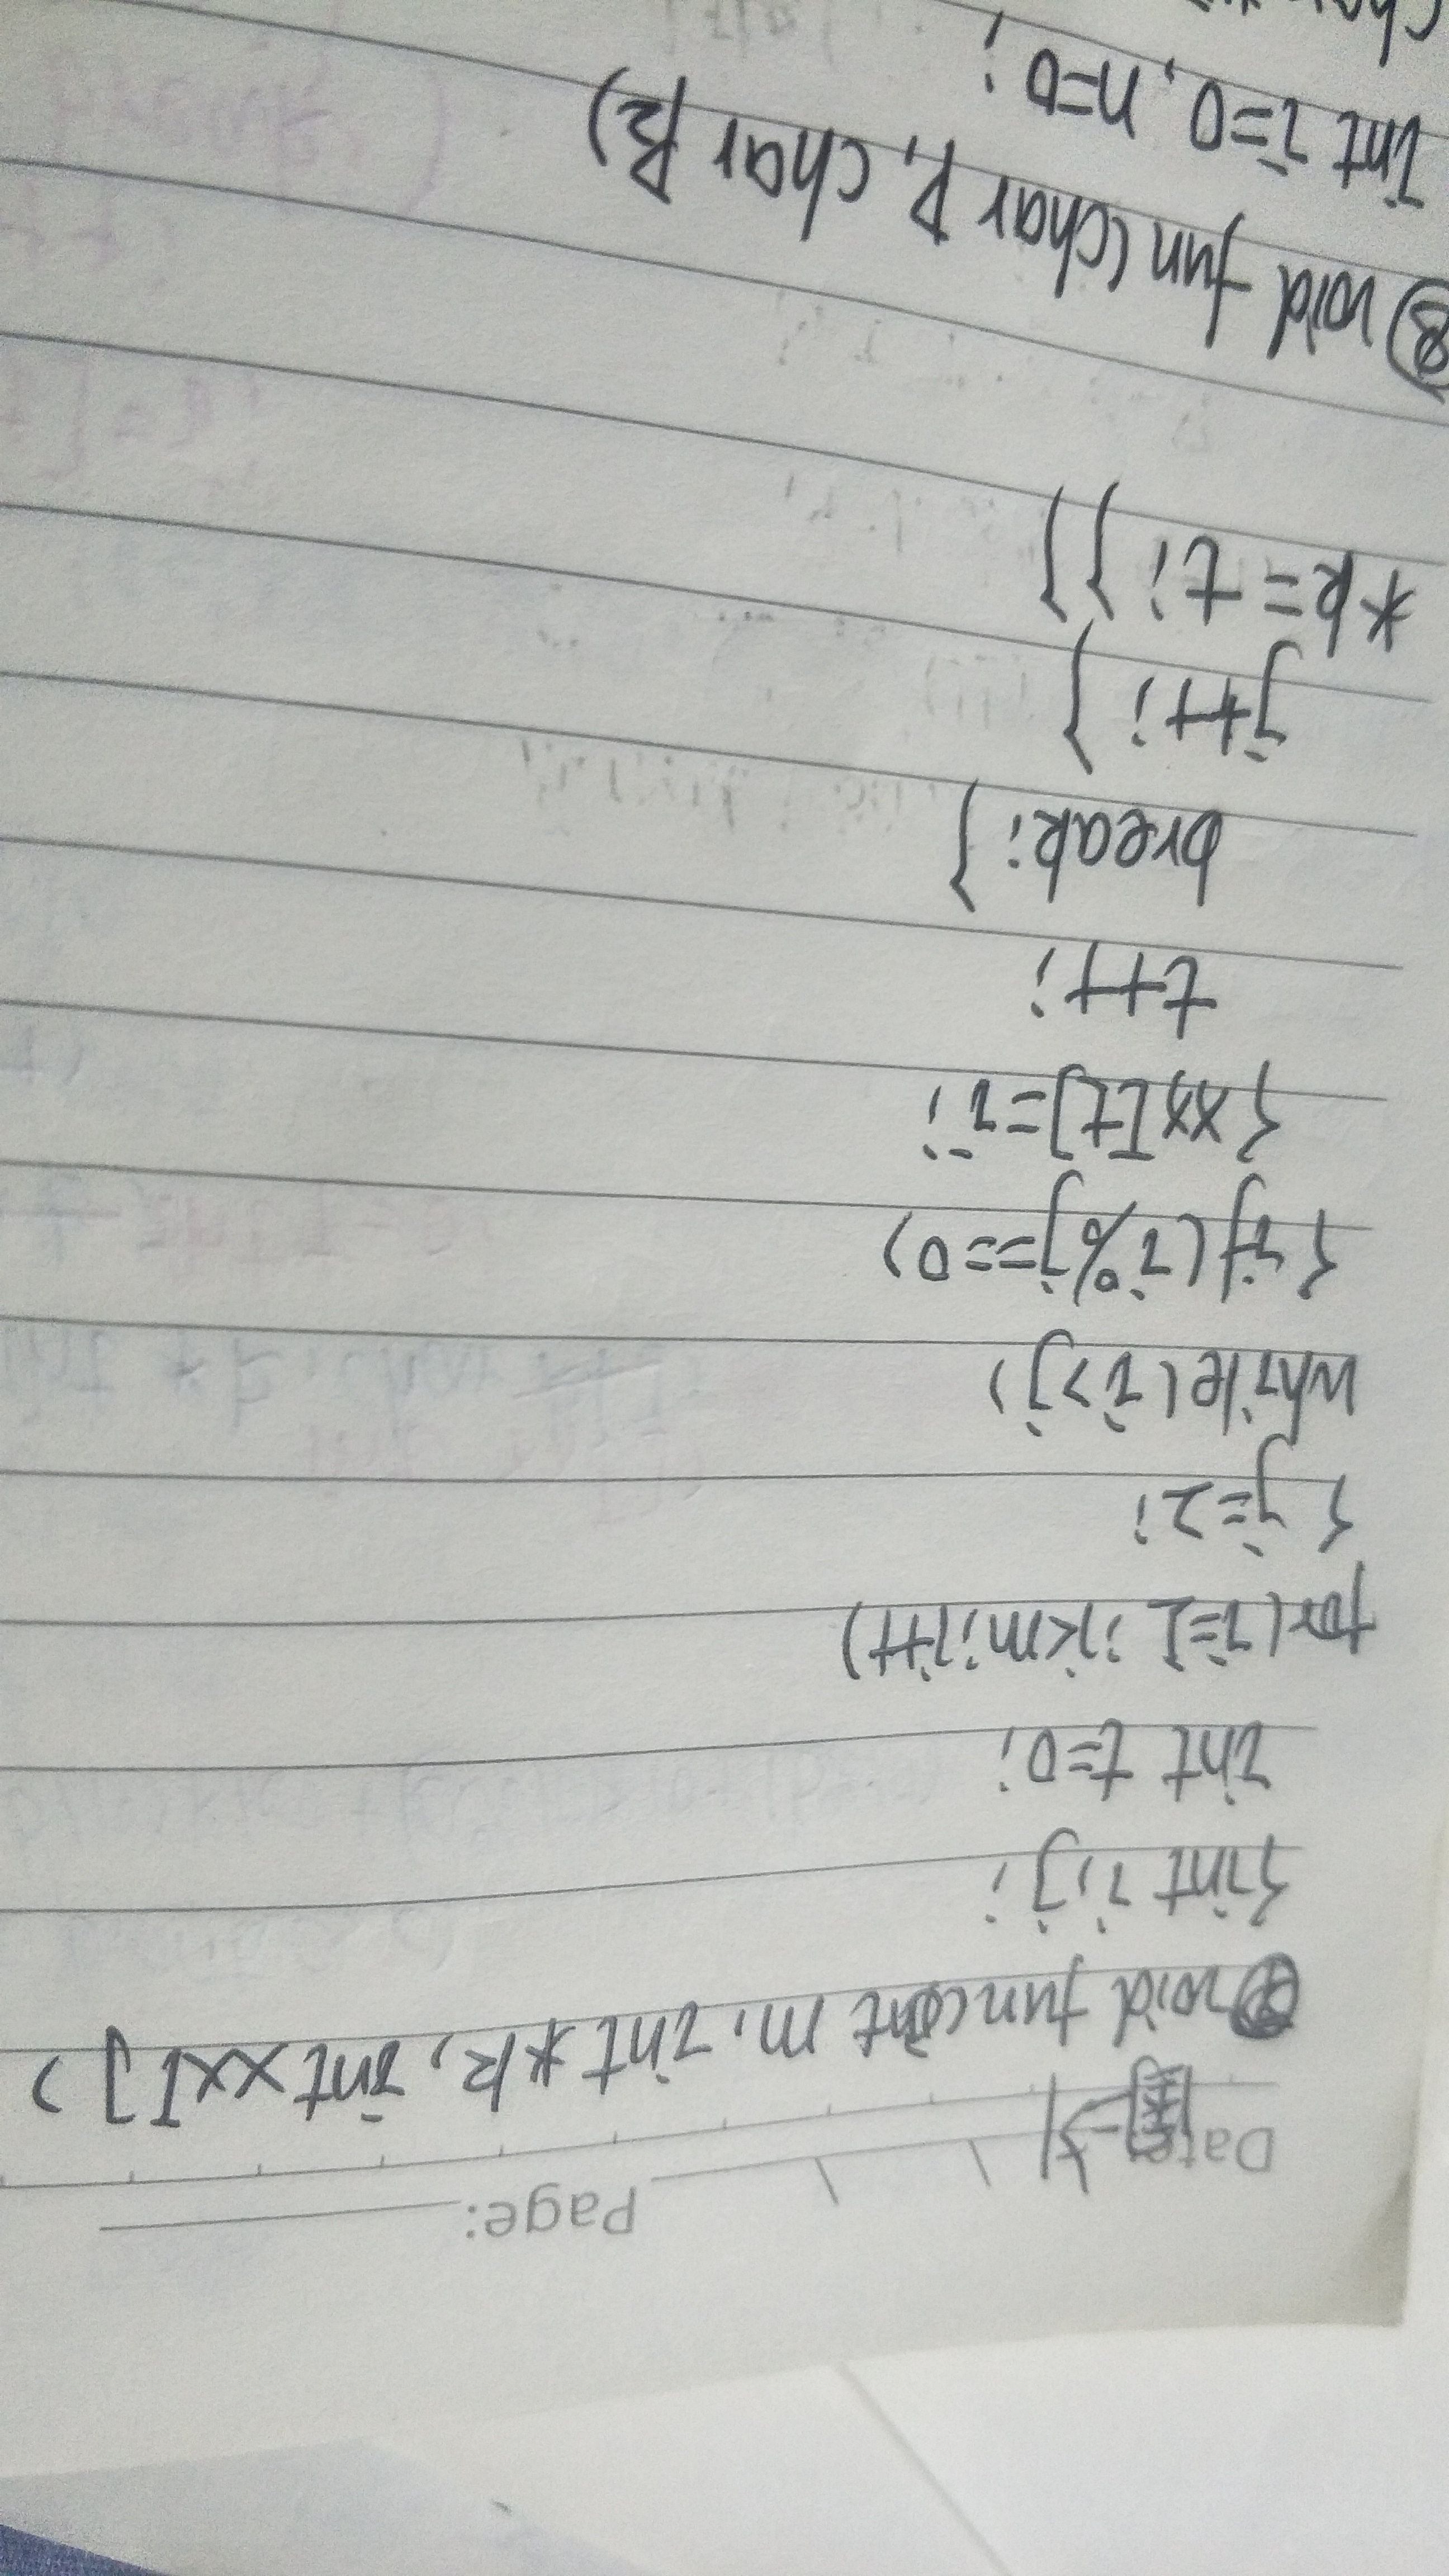 Date: Page:
void fun(int m, int *k, int xx[])
{int i, j;
int t=0;
for(i=1;i<m;i++)
{ j=2;
while(i>j)
{if(i%j==0)
{xx[t]=i;
t++;
break;}
j++;}
*k=t;}}
⑧void fun(char P, char P2)
int i=0, n=0;